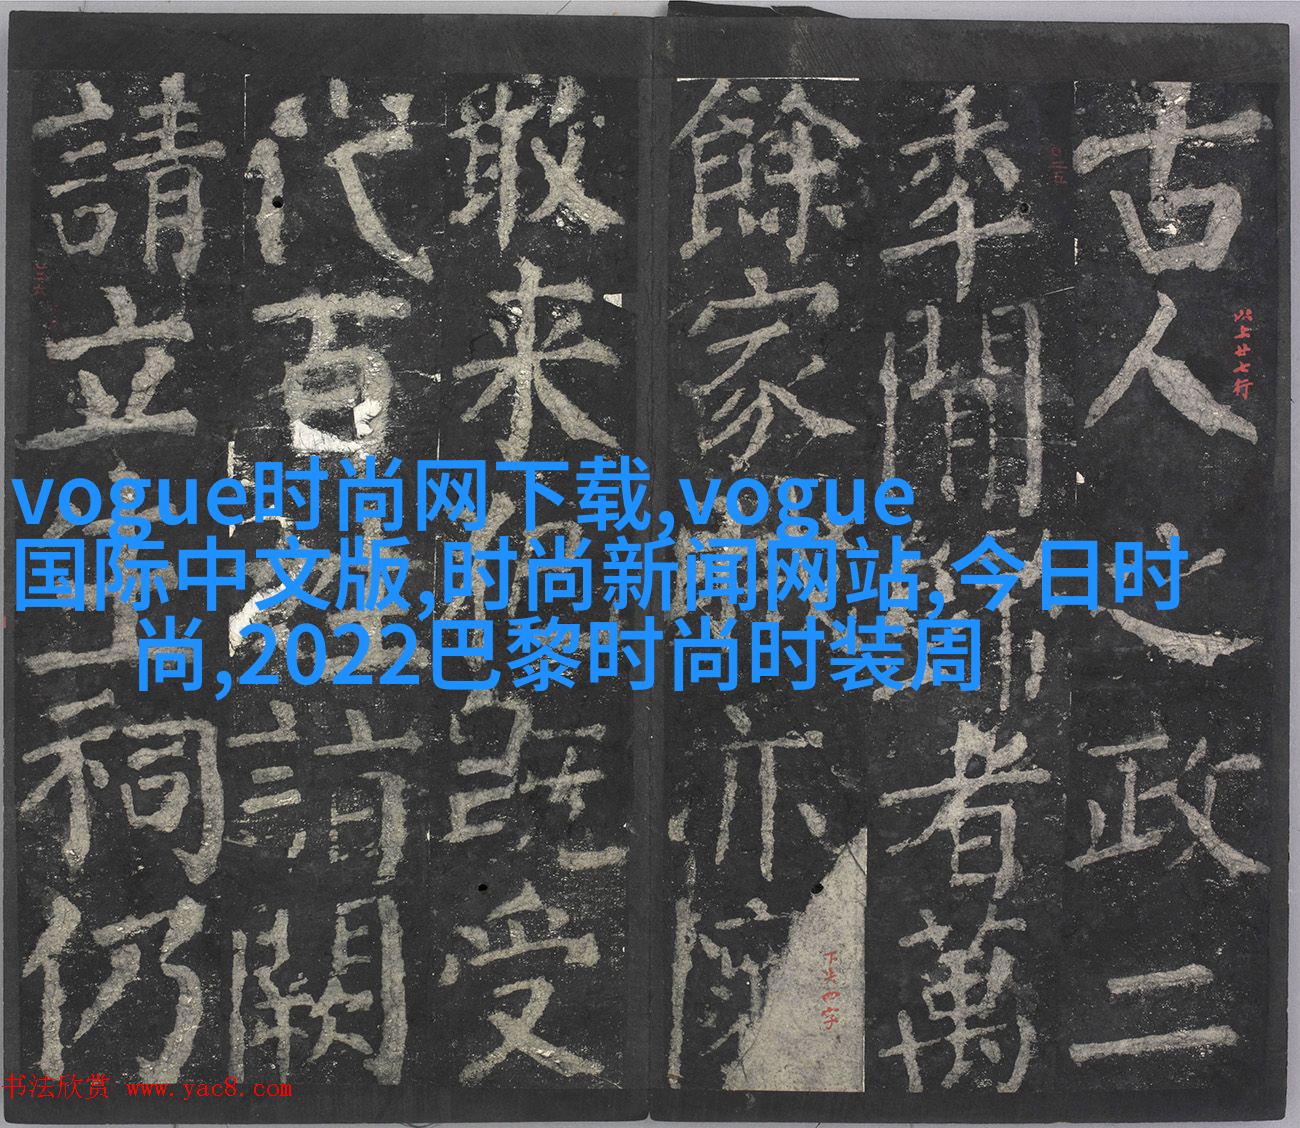 vogue时尚网下载,vogue
国际中文版,时尚新闻网站, 今日时
尚,2022巴黎时尚时装周
古人之政二
秊間者萬
餘家亦
敢来既受
代百詣闕
請立祠仍
以上廿七行
下四字
书法欣赏 www.yac8.com